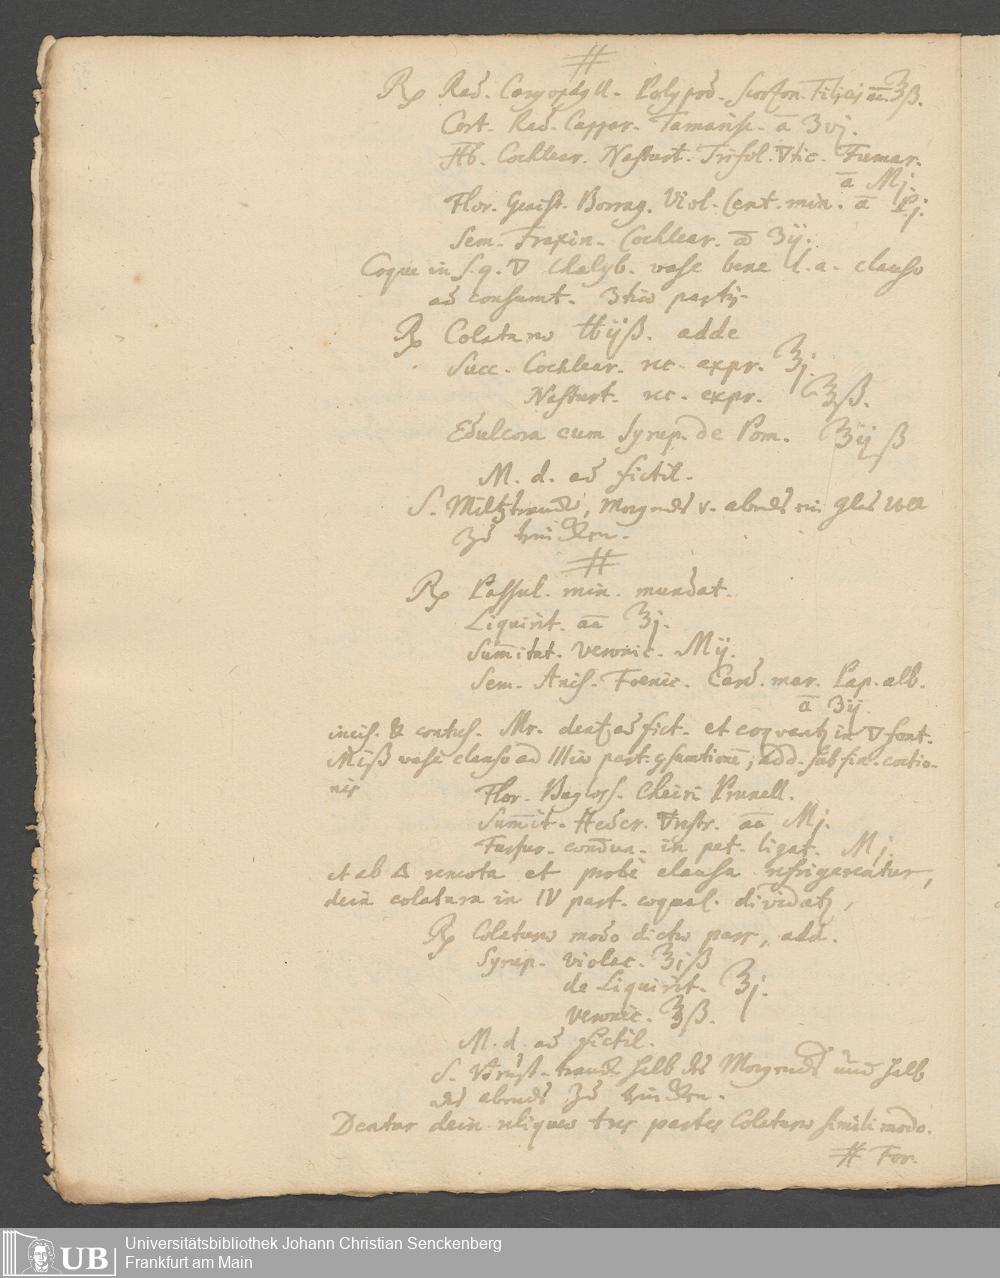 #
℞ Rad. Caryophyll. Polypod. Scorzon. Filicis aa ℥ß.
Cort. Rad. Cappar. Tamarisc. a ʒvj.
Hb. Cochlear. Nasturt. Trifol. ▽tic. Fumar.
a Mj.
Flor. Genist. Borrag. Viol. Cent. min. a Pj.
Sem. Fraxin. Cochlear. a ʒij.
Coque in s.q. ▽ chalyb. vase bene l. a. clauso
ad consumt. 3tiæ partis
℞ Colaturæ ℔ijß. adde
Succ. Cochlear. rec. expr. ℥j.
Nasturt. rec. expr. ℥ß.
Edulcora cum Syrup. de Pom. ℥ijß
M. d. ad fictil.
S. Miltztranck, Morgends v. abends ein glas voll
zu trincken.
#
℞ Passul. min. mundat.
Liquirit. aa ℥j.
Sum̄itat. Veronic. Mij.
Sem. Anis. Foenic. Card. mar. Pap. alb.
a ʒij.
incis. & contus. Mr. dentʒ ad fict. et coquantʒ in ▽ font.
Miß vase clauso ad IIIiæ part. gsumtionē, add. sub fin. coctio-
nis
Flor. Bugloss. Cheiri Prunell.
Sum̄it. Heder. ▽restr. aa Mj.
Furfur. in pet. ligat. Mj.
et ab △ remota et probè clausa refrigereatur,
dein colatura in IV part. coqual. dividatʒ,
℞ Colaturæ modo dictæ part, add.
Syrup. Violac. ℥jß
de Liquirit. ℥j.
Veronic. ℥ß.
M. d. ad fictil.
S. Brust-tranck halb des Morgends und halb
des abends zu trincken.
Dentur dein reliquæ tres partes Colaturæ simili modo.
# For.
UB
Universitätsbibliothek Johann Christian Senckenberg
Frankfurt am Main